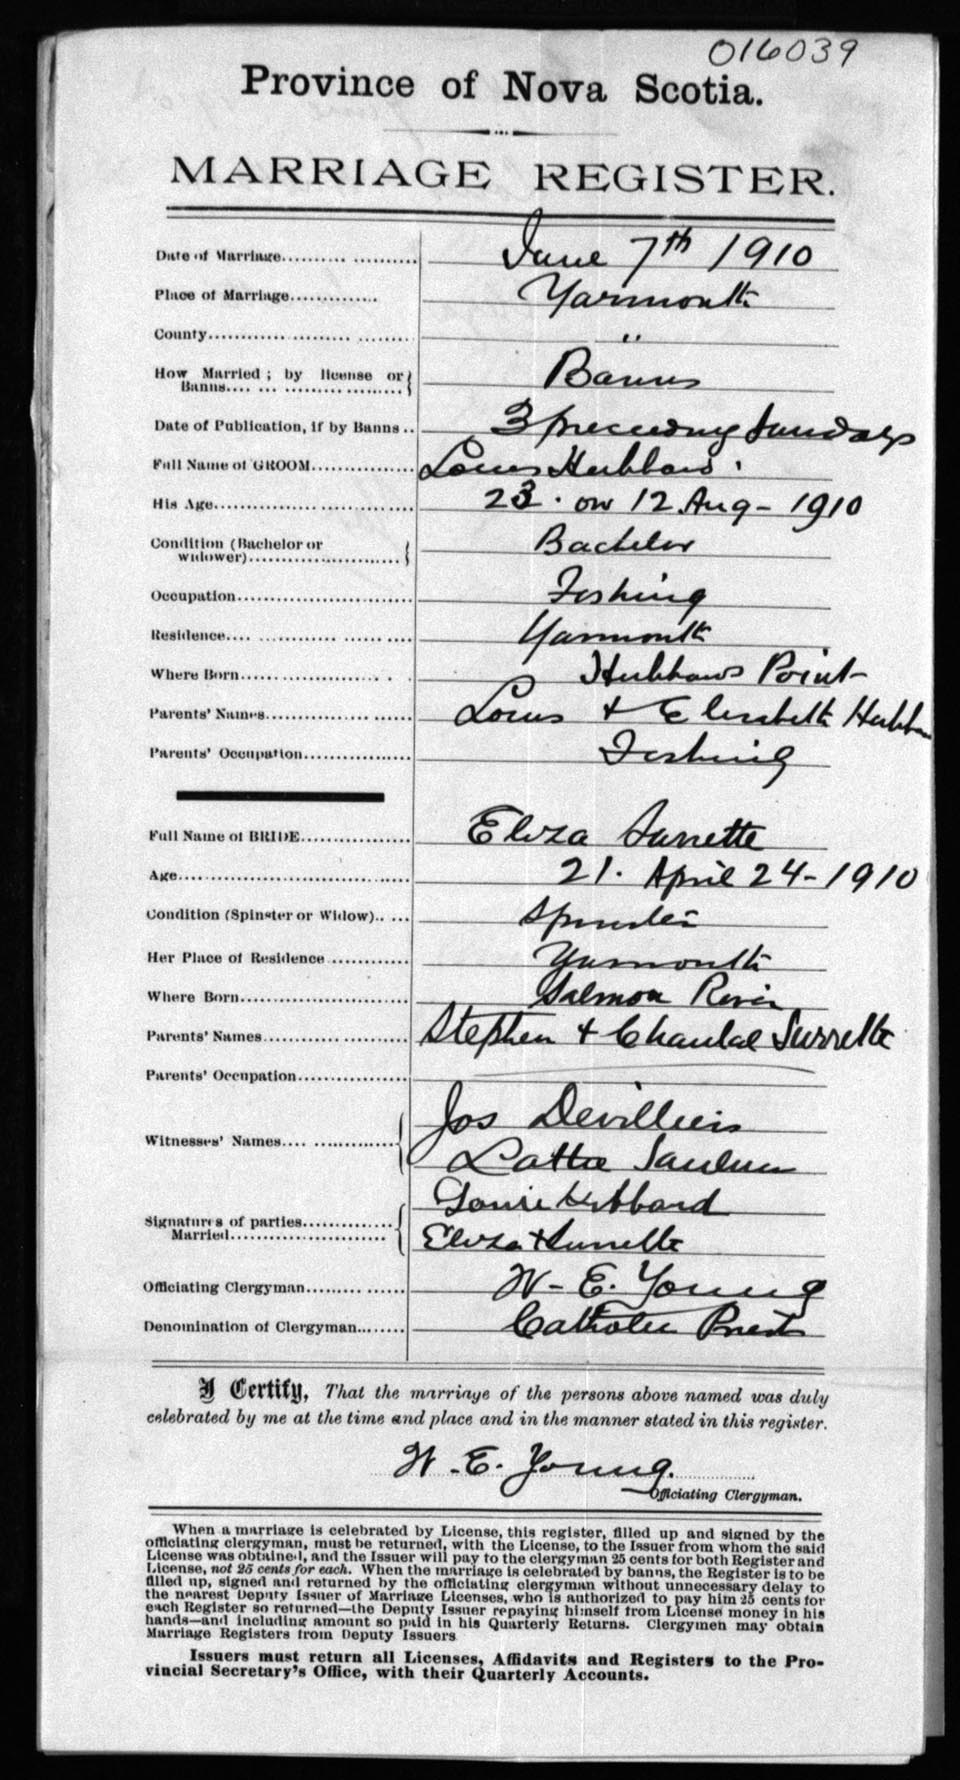 016039
Province of Nova Scotia.
MARRIAGE REGISTER.
Date of Marriage.......... June 7th 1910
Place of Marriage............. Yarmouth
County.......... "
How Married ; by license or Banns.... Banns
Date of Publication, if by Banns.. 3 preceding Sundays
Full Name of GROOM............... Louis Hubbard.
His Age.......... 23. on 12 Aug - 1910
Condition (Bachelor or widower).......... Bachelor
Occupation.......... Fishing
Residence.... Yarmouth
Where Born.......... Hubbards Point
Parents' Names.......... Louis & Elizabeth Hubbard
Parents' Occupation.......... Fishing
Full Name of BRIDE.......... Eliza Surrette
Age.......... 21. April 24 - 1910
Condition (Spinster or Widow)..... Spinster
Her Place of Residence .......... Yarmouth
Where Born.......... Salmon River
Parents' Names.......... Stephen & Chantal Surrette
Parents' Occupation..........
Witnesses' Names.... Jos Devilliers
Signatures of parties Married.......... Louis Hubbard
Eliza + Surrette
Officiating Clergyman.......... W - E. Young
Denomination of Clergyman........ Catholic Priest
I Certify, That the marriage of the persons above named was duly
celebrated by me at the time and place and in the manner stated in this register.
W. E. Young.
Officiating Clergyman.
When a marriage is celebrated by License, this register, filled up and signed by the
officiating clergyman, must be returned, with the License, to the Issuer from whom the said
License was obtained, and the Issuer will pay to the clergyman 25 cents for both Register and
License, not 25 cents for each. When the marriage is celebrated by banns, the Register is to be
filled up, signed and returned by the officiating clergyman without unnecessary delay to
the nearest Deputy Issuer of Marriage Licenses, who is authorized to pay him 25 cents for
each Register so returned—the Deputy Issuer repaying himself from License money in his
hands—and including amount so paid in his Quarterly Returns. Clergymen may obtain
Marriage Registers from Deputy Issuers
Issuers must return all Licenses, Affidavits and Registers to the Pro-
vincial Secretary's Office, with their Quarterly Accounts.